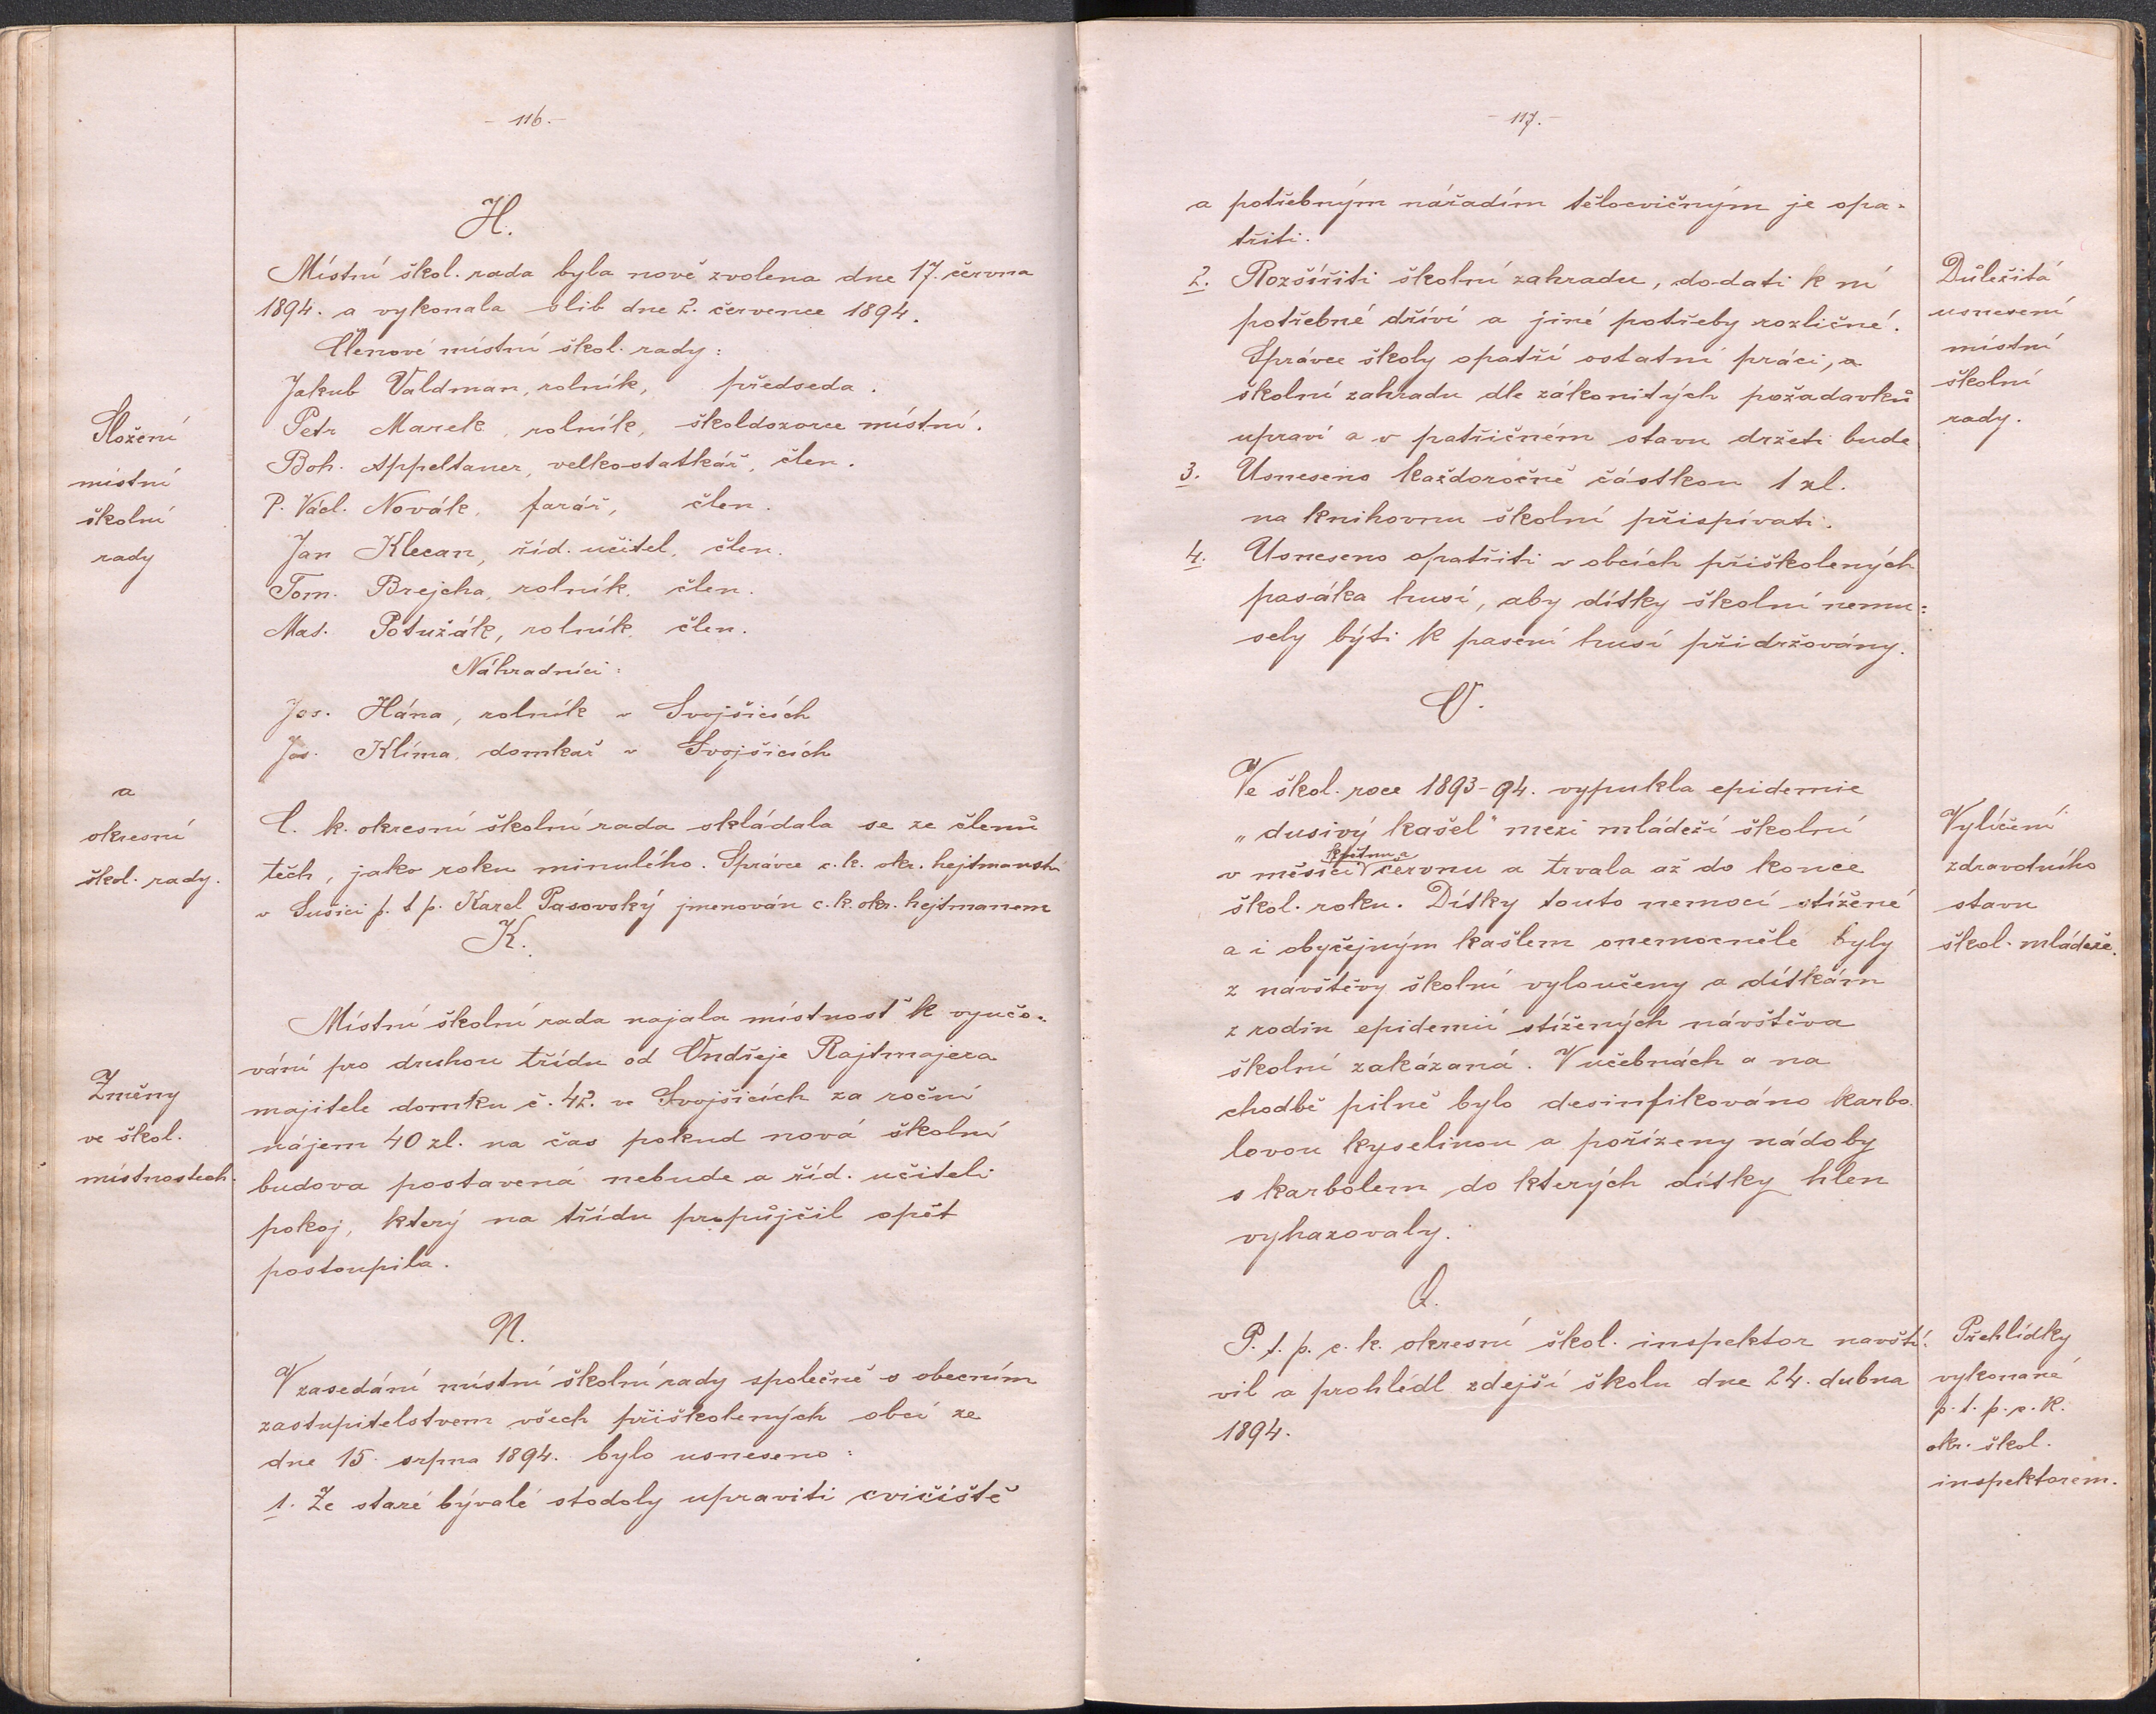 - 116. -
H.
Místní škol. rada byla nově zvolena dne 17. června
1894. a vykonala slib dne 2. července 1894.
Členové místní škol. rady:
Jakub Valdman, rolník, předseda.
Petr Marek, rolník, školdozorce místní.
Boh. Appeltauer, velkostatkář, člen.
P. Václ. Novák, farář, člen.
Jan Klecan, říd. učitel, člen.
Tom. Brejcha, rolník, člen.
Mat. Potužák, rolník, člen.
Náhradníci:
Jos. Hána, rolník v Svojšicích
Jos. Klíma, domkař v Svojšicích
Složení
místní
školní
rady
a
okresní
škol. rady.
C. k. okresní školní rada skládala se ze členů
těch, jako roku minulého. Správce c. k. okr. hejtmanství
v Sušici p. t. p. Karel Pasovský jmenován c. k. okr. hejtmanem
K.
Místní školní rada najala místnosť k vyučo-
vání pro druhou třídu od Ondřeje Rajtmajera
majitele domku č. 42. ve Svojšicích za roční
nájem 40 zl. na čas pokud nová školní
budova postavená nebude a říd. učiteli
pokoj, který na třídu propůjčil opět
postoupila.
Změny
ve škol.
místnostech.
N.
V zasedání místní školní rady společně s obecním
zastupitelstvem všech přiškolených obcí ze
dne 15. srpna 1894. bylo usneseno:
1. Ze staré bývalé stodoly upraviti cvičiště
- 117. -
a potřebným nářadím tělocvičným je opa-
třiti.
2. Rozšířiti školní zahradu, dodati k ní
potřebné dříví a jiné potřeby rozličné.
Správce školy opatří ostatní práci, a
školní zahradu dle zákonitých požadavků
upraví a v patřičném stavu držeti bude
3. Usneseno každoročně částkou 1 zl.
na knihovnu školní přispívati.
4. Usneseno opatřiti v obcích přiškolených
pasáka husí, aby dítky školní nemu-
sely býti k pasení husí přidržovány.
Důležitá
usnesení
místní
školní
rady.
O.
Ve škol. roce 1893-94. vypukla epidemie
„dusivý kašel" mezi mládeží školní
květnu a
v měsíci červnu a trvala až do konce
škol. roku. Dítky touto nemocí stížené
a i obyčejným kašlem onemocněle byly
z návštěvy školní vyloučeny a dítkám
z rodin epidemií stížených návštěva
školní zakázaná. V učebnách a na
chodbě pilně bylo desinfikováno karbo-
lovou kyselinou a pořízeny nádoby
s karbolem do kterých dítky hlen
vyhazovaly.
Vylíčení
zdravotního
stavu
škol. mládeže.
Q.
P. t. p. c. k. okresní škol. inspektor navští-
vil a prohlédl zdejší školu dne 24. dubna
1894.
Přehlídky
vykonané
p. t. p. c. k.
okr. škol.
inspektorem.